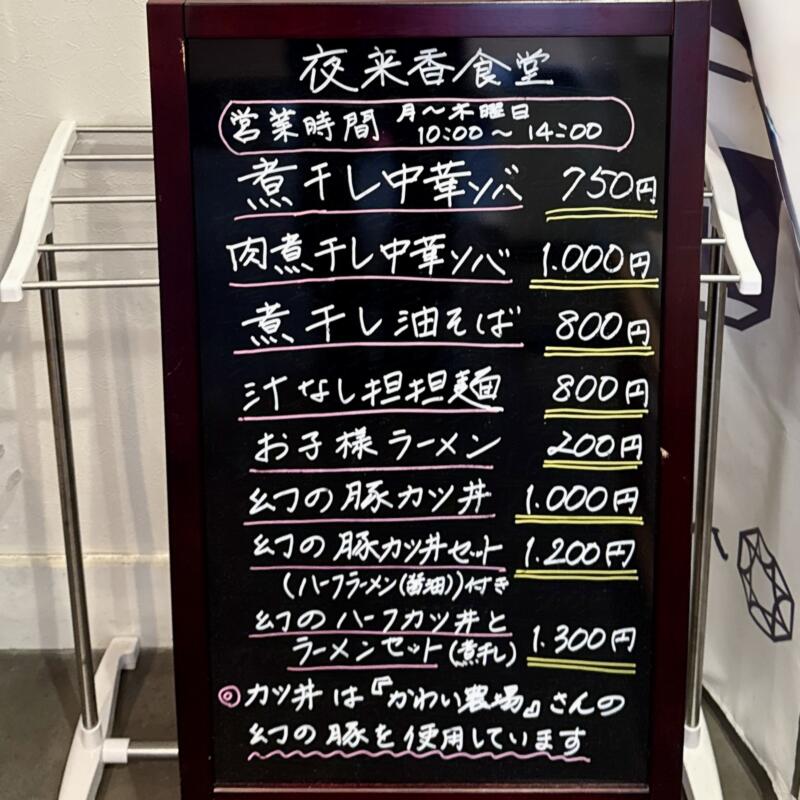 夜来香食堂
営業時間 月〜木曜日
10:00〜14:00
煮干し中華ソバ 750円
肉煮干し中華ソバ 1.000円
煮干し油そば 800円
汁なし担担麺 800円
お子様ラーメン 200円
幻の豚カツ丼 1.000円
幻の豚カツ丼セット 1.200円
(ハーフラーメン(醤油))付き
幻のハーフカツ丼と
ラーメンセット(煮干し) 1.300円
◎カツ丼は『かわい農場』さんの
幻の豚を使用しています